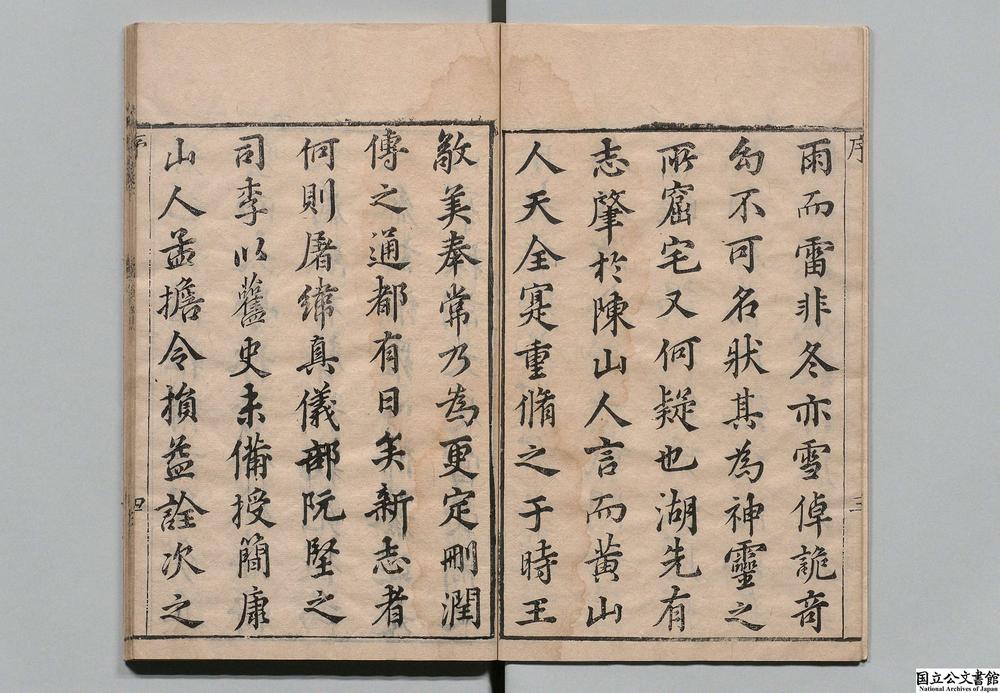 序
三
雨而雷非冬亦雪倬詭奇
幻不可名狀其為神靈之
所窟宅又何疑也湖先有
志肇於陳山人言而黃山
人天全寔重脩之于時王
敬美奉常乃為更定刪潤
傳之通都有日矣新志者
何則屠緯真儀部阮堅之
司李以舊史未備授簡康
山人孟擔令損益詮次之
序
四
国立公文書館
National Archives of Japan